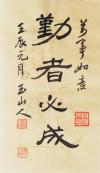 萬事如意
勤者必成
壬辰元月玉山人